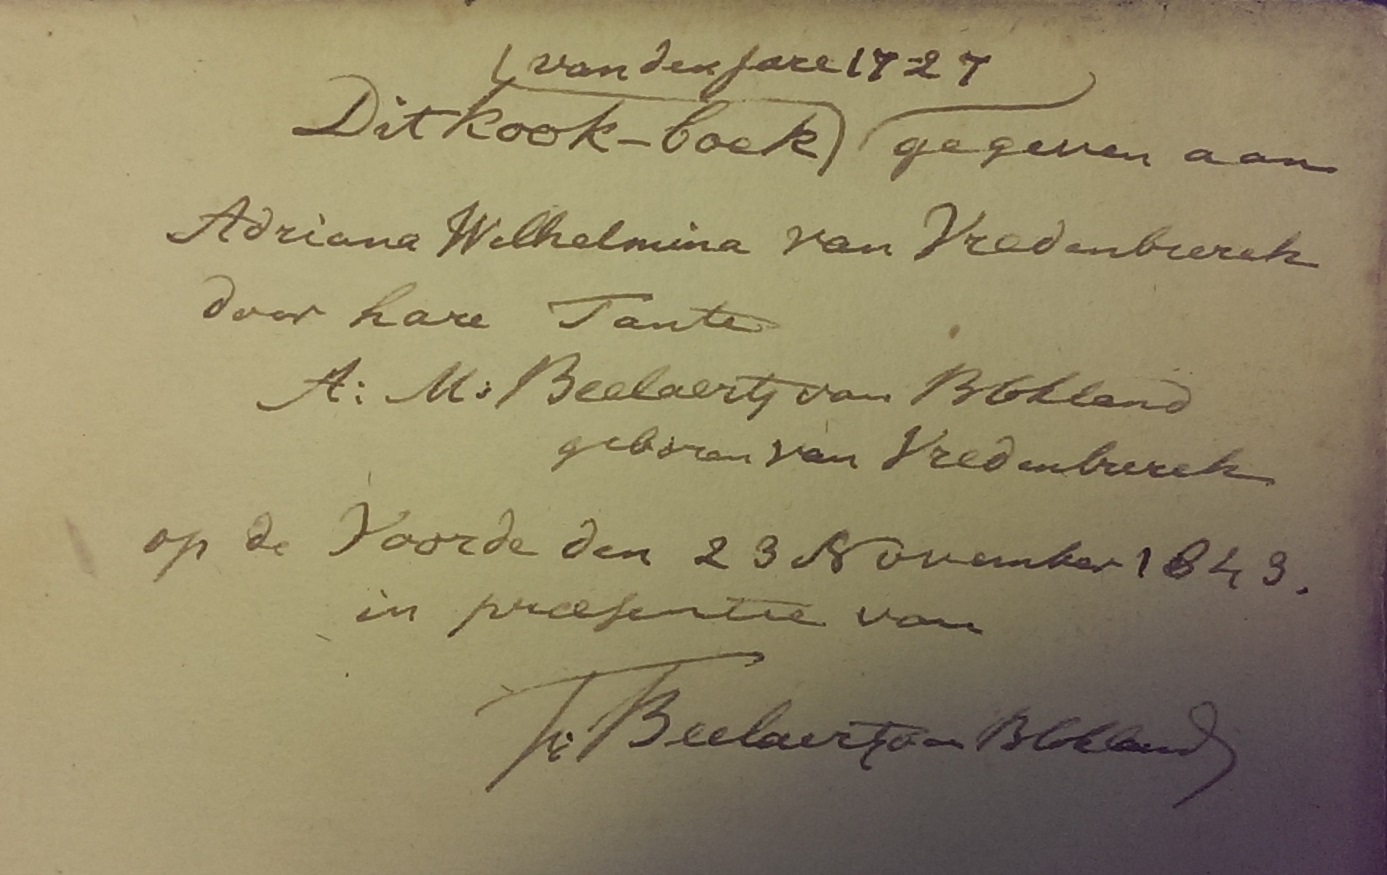 (van den Jare 1727
Dit kook-boek) gegeven aan
Adriana Wilhelmina van Vredenburch
door hare Tante
A: M: Beelaerts van Blokland
geboren van Vredenburch
op de Voorde den 23 November 1843.
in præsentie van
Beelaerts van Blokland